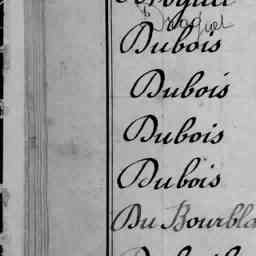 Dubois
Dubois
Dubois
Dubois
Du Bourbla